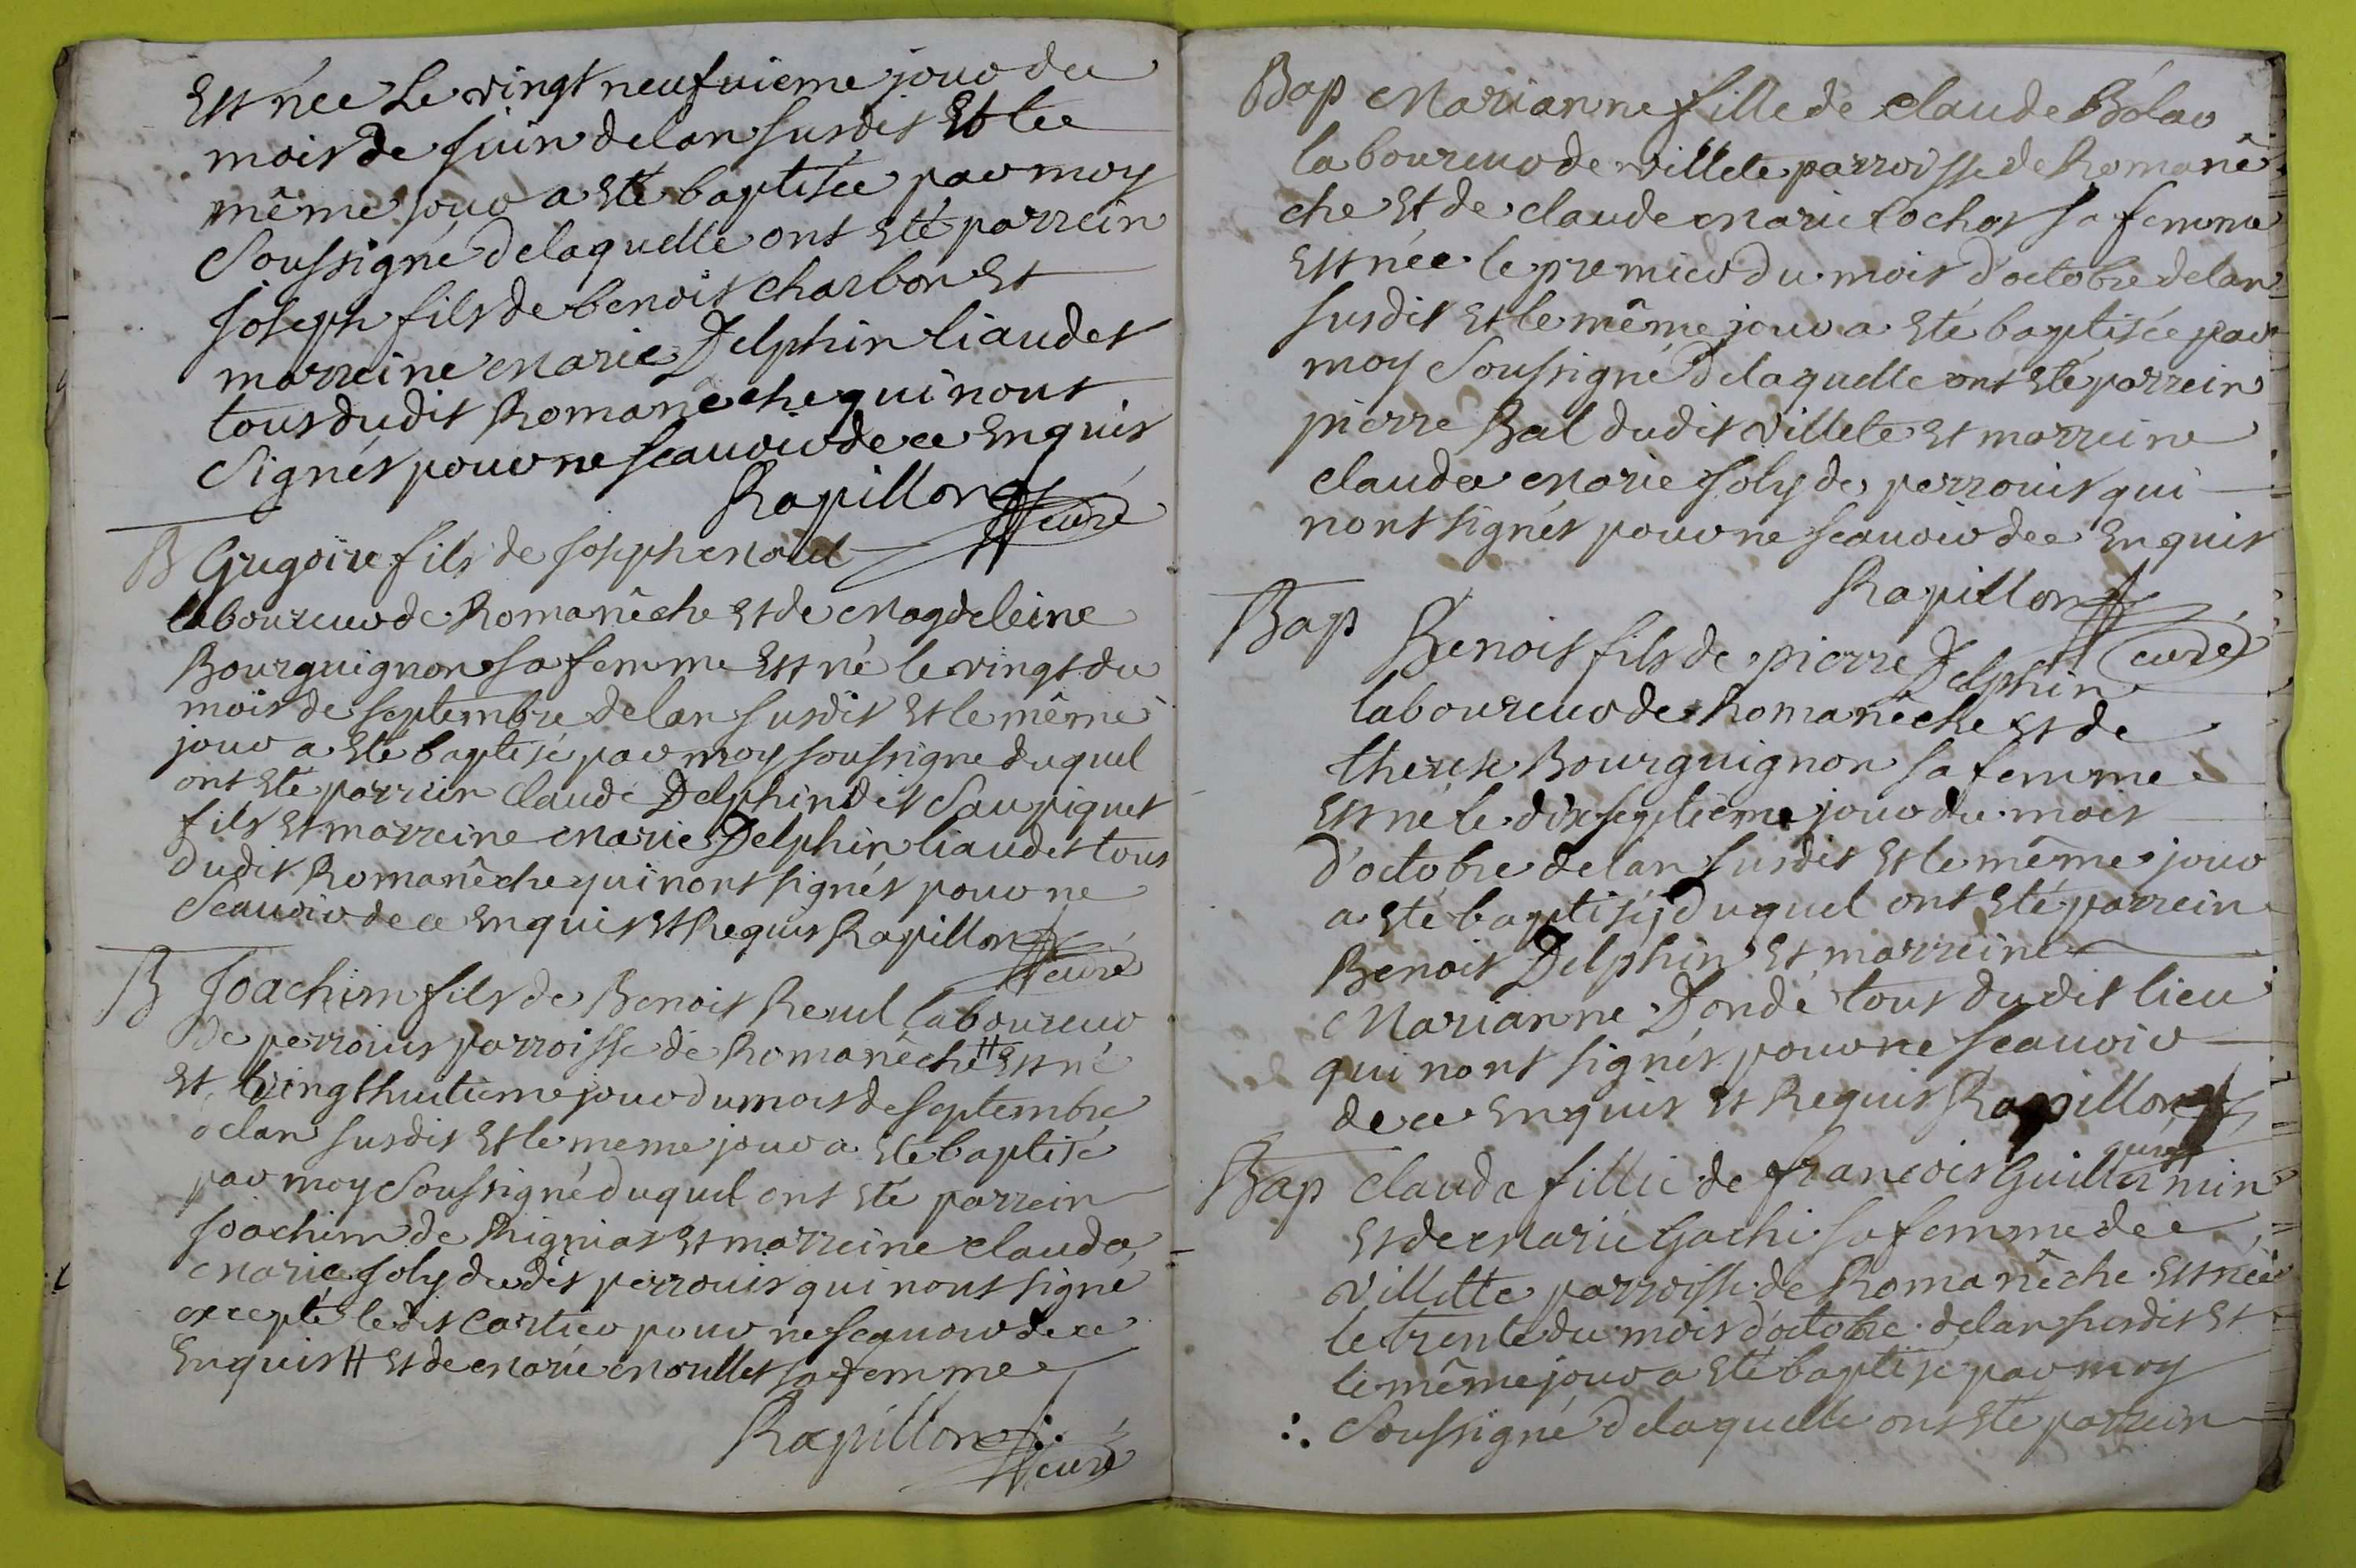 Est née Le vingt neufuieme jour du
mois de Juin delan susdit Et le
même jour a Eté baptisée par moy
Soussigné delaquelle ont Eté parrein
Joseph fils de benoit charbon Et
marreine Marie Delphin liaudet
tous dudit Romanêche qui nont
Signés pour ne scauoir de ce Enquis
Rapillon curé
B Gregoire fils de Joseph Morel
laboureur de Romanêche Et de Magdeleine
Bourguignon sa femme Est né le vingt du
mois de septembre delan susdit Et le même
jour a Eté baptisé par moy soussigne duquel
ont Eté parrein Claude Delphin dit Saupiquet
fils Et marreine Marie Delphin liaudet tous
dudit Romanêche qui nont signés pour ne
Scauoir de ce Enquis Et Requis Rapillon
curé
B Joachim fils de Benoit Reml laboureur
de perrouis parroisse de Romanêche # Est né
Et vingt huitieme jour du mois de septembre
delan susdit Et le meme jour a Eté baptisé
par moy Soussigné duquel ont Eté parrein
Joachim de Rignias Et marreine clauda
Marie Joly dudit perrouis qui nont signé
excepté ledit Cartier pour ne scauoir de ce
Enquis # Et de Marie Moullet sa femme
Rapillon
curé
Bap Marianne fille de claude Bolar
laboureur de villete parroisse de Romanê
che Et de claude Marie Cochat sa femme
Est née le premier du mois d'octobre delan
susdit Et le même jour a Eté baptisée par
moy Soussigné delaquelle ont Eté parrein
pierre Bal dudit villete Et marreine
clauda Marie Joly de perrouis qui
nont signés pour ne scauoir de ce Enquis
Rapillon
curé
Bap Benoit fils de pierre Delphin
laboureur de Romanêche Et de
therese Bourguignon sa femme
Est né le dix septieme jour du mois
d'octobre delan susdit Et le même jour
a Eté baptisé duquel ont Eté parrein
Benoit Delphin Et marreine
Marianne Dondé tous dudit lieu
qui nont signés pour ne scauoir
de ce Enquis Et Requis Rapillon
curé
Bap Clauda fillie de françois Guillermin
Et de Marie Gachi sa femme de
villette parroisse de Romanêche Est née
le trente du mois d'octobre delan susdit Et
le même jour a Eté baptisé par moy
Soussigné delaquelle ont Eté parrein